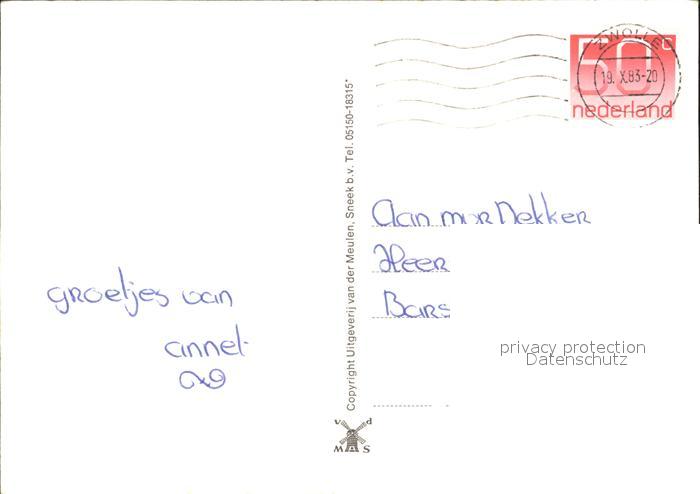 ZWOLLE
19. X.83-20
50c
nederland
groetjes van
annet
Aan
Heer
Bars
privacy protection
Datenschutz
Copyright Uitgeverij van der Meulen, Sneek b.v. Tel. 05150-18315*
v d
M S